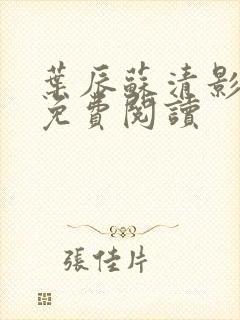 葉辰蘇清影
免費閱讀
張佳片